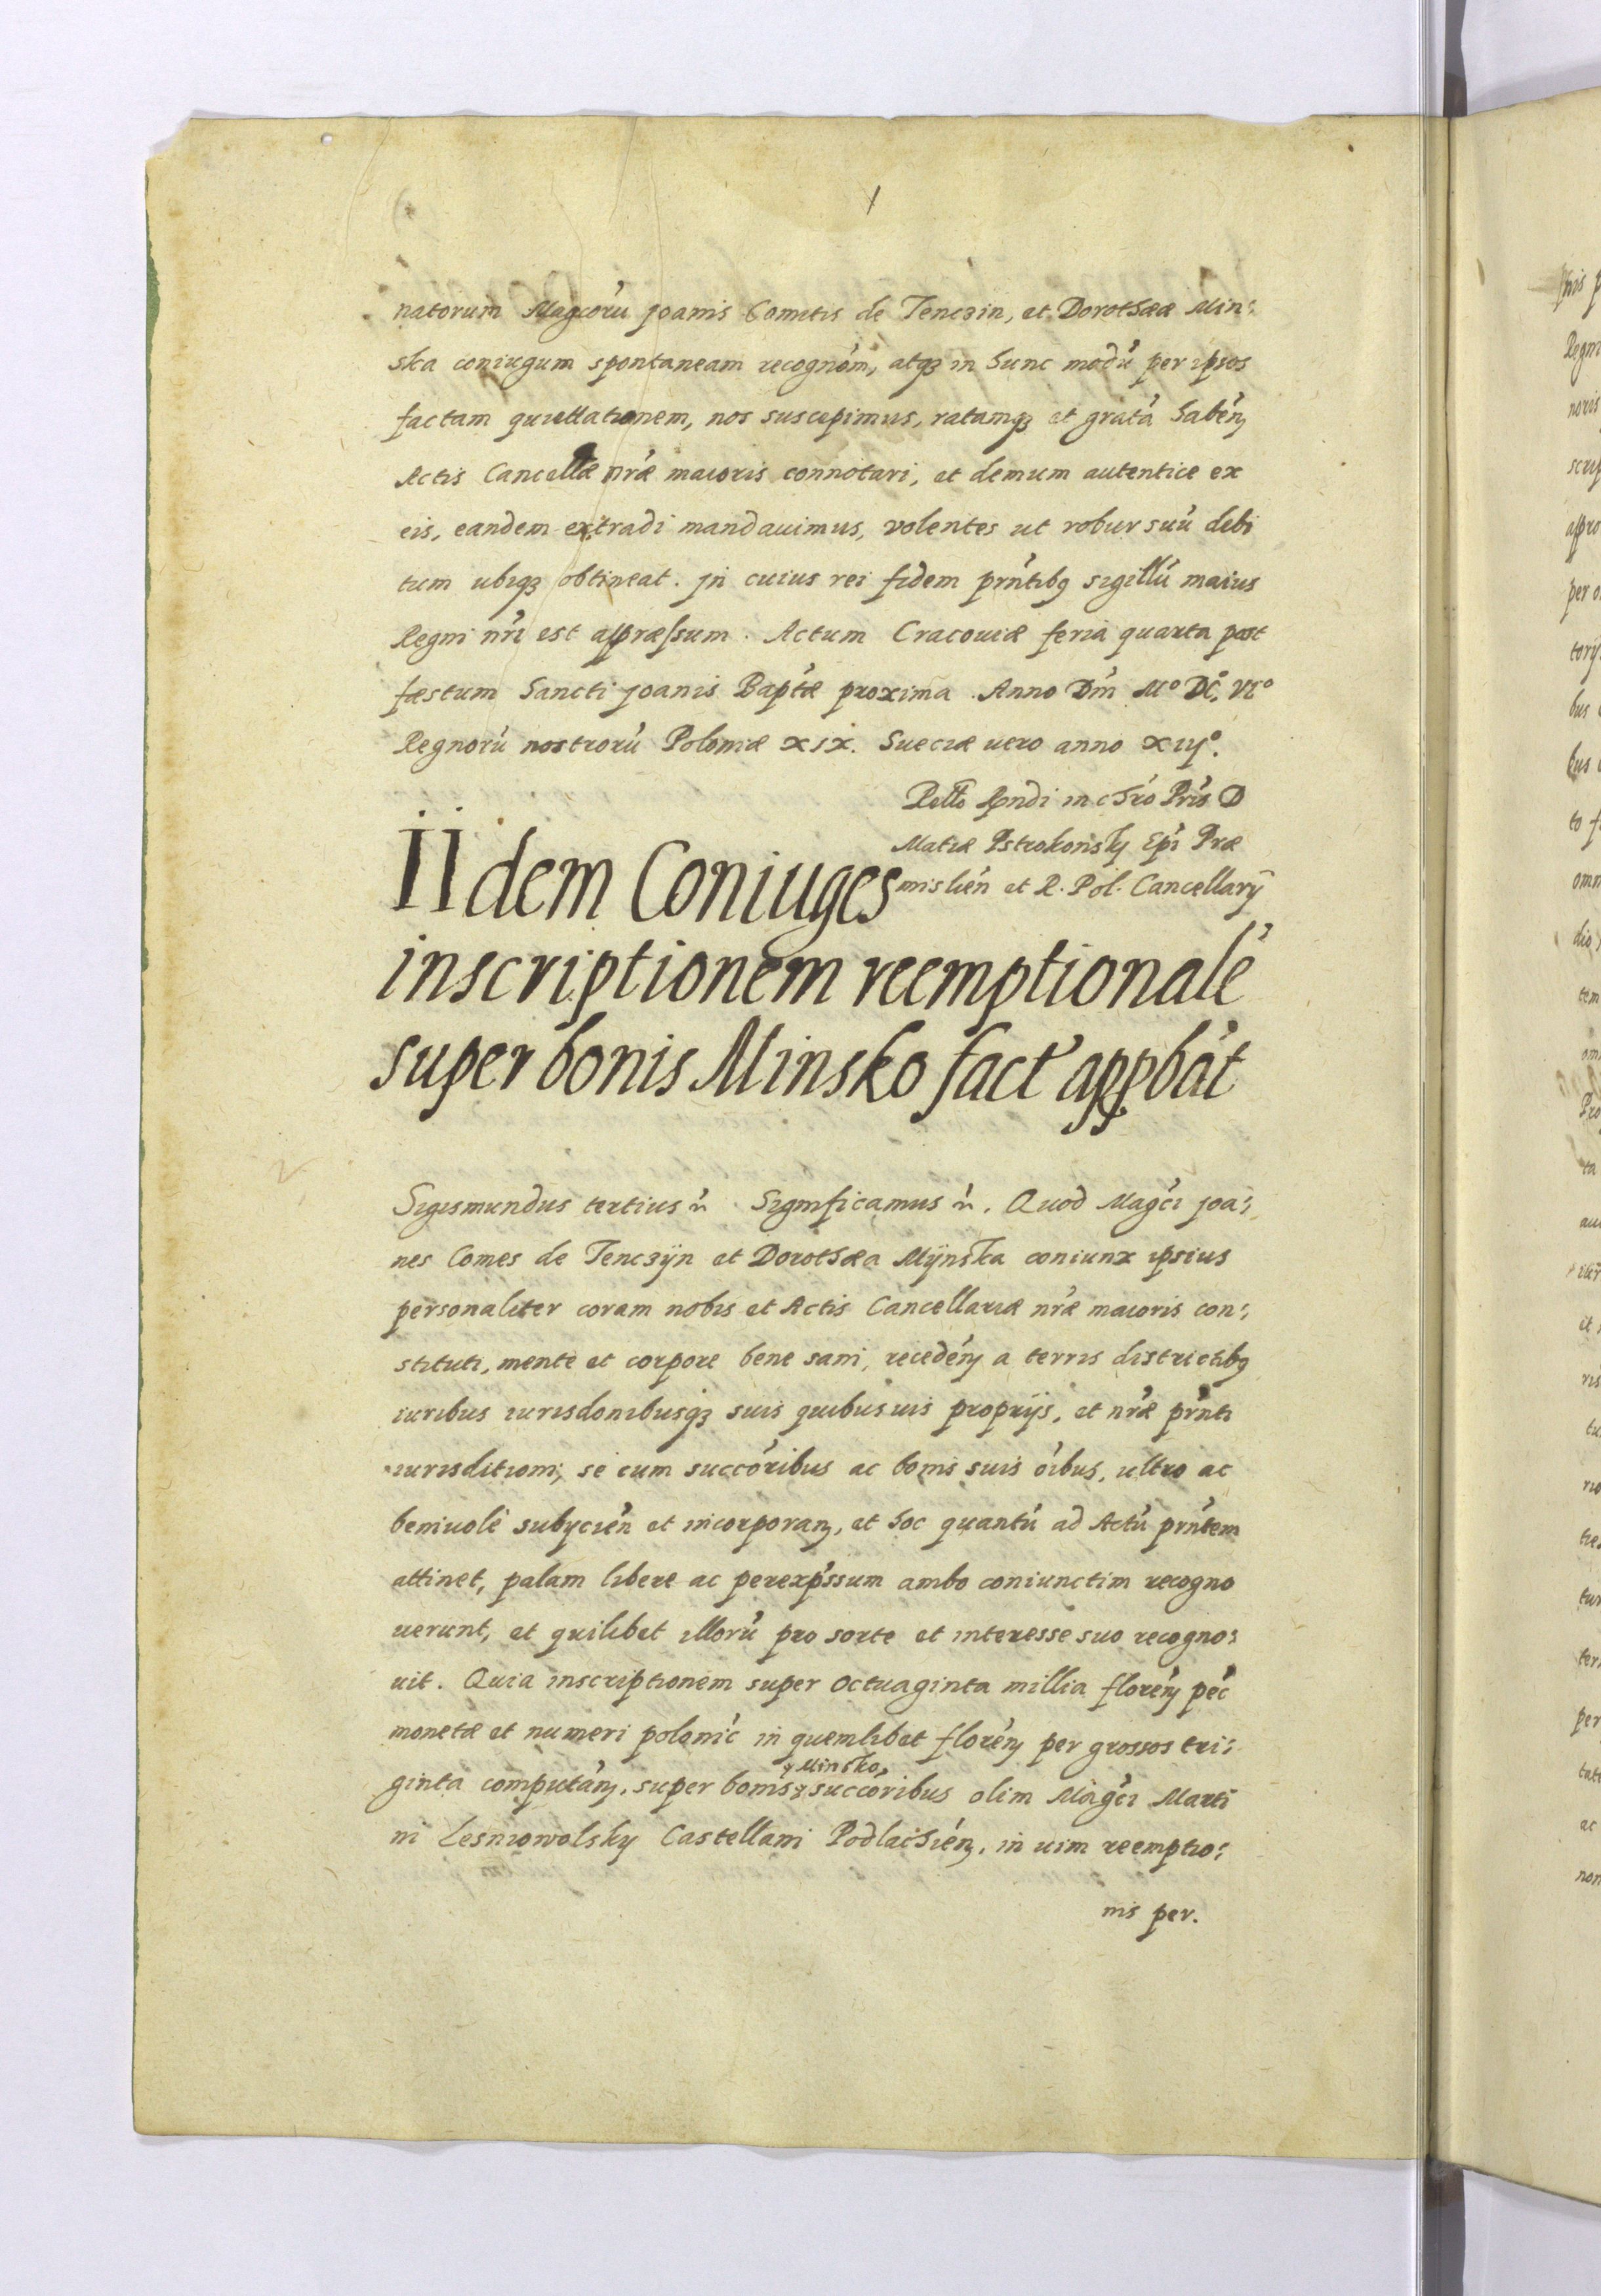 natorum Magcorú Joanis Comitis de Tenczin, et Dorothææ Min:
ska coniugum spontaneam recognóm, atqꝫ in hunc modú per ipsos
factam quietationem, nos suscepimus, ratamqꝫ et gratá habéń
Actis Cancellæ nræ maioris connotari, et demum autentice ex
eis, eandem extradi mandauimus, volentes ut robur suú debi
tum ubiqꝫ obtineat. Jn cuius rei fidem prńtibꝫ sigillú maius
Regni nrí est appræssum. Actum Cracouiæ feria quarta post
fæstum Sancti Joanis Baptæ proxima. Anno Dńi Mº DCº, VIº
Regnorú nostrorú Poloniæ XIX. Sueciæ uero anno XIIJº.
Rello Rńdi in Chró Prís D
Matiæ Pstrokonsky Epí Præ
mislień et R. Pol. Cancellarÿ
IIdem Coniuges
inscriptionem reemptionalé
super bonis Minsko fact' appbát
Sigismundus tertius ń. Significamus ń. Quod Magći Joa:
nes Comes de Tenczÿn et Dorothæa Mÿnska coniunx ipsius
personaliter coram nobis et Actis Cancellariæ nræ maioris con:
stituti, mente et corpore bene sani, recedéń a terris districtibꝫ
iuribus iurisdonibusqꝫ suis quibusuis proprijs, et nræ prńti
iurisditioni, se cum succoribus ac bonis suis óibus, ultro ac
beniuolé subijcień et incorporań, et hoc quantú ad Actú prńtem
attinet, palam libere ac perexpssum ambo coniunctim recogno
uerunt, et quilibet illorú pro sorte et interesse suo recogno:
uit. Quia inscriptionem super octuaginta millia floréń peć
monetæ et numeri polonić in quemlibet floréń per grossos tri:
Minsko
ginta computáń, super bonis succoribus olim Magći Marti
ni Lesniowolsky Castellani Podlachiéń, in uim reemptio:
nis per.